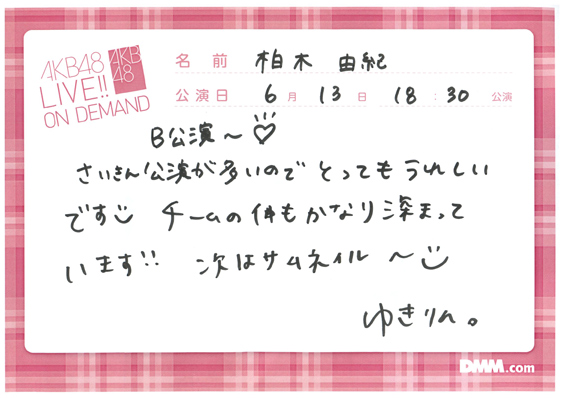 AKB48
LIVE!!
ON DEMAND
AKB
48
名前 柏木 由紀
公演日 6月 13日 18:30 公演
B公演～♡
さいきん公演が多いので とってもうれしい
です チームの仲もかなり深まって
います!! 次はサムネイル ～
ゆきりん。
DMM.com